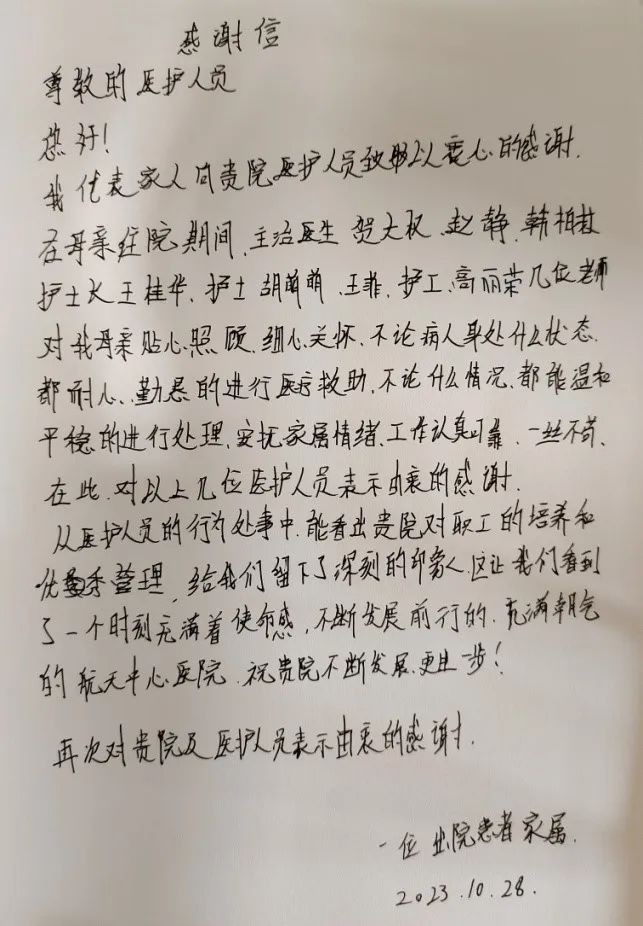 感谢信
尊敬的医护人员
您好!
我代表家人向贵院医护人员致以衷心的感谢.
在母亲住院期间,主治医生 贺大权、赵静、韩柏林
护士长王桂华、护士胡萌萌、王菲、护工、高丽荣几位老师
对我母亲贴心照顾、细心关怀、不论病人身处什么状态、
都耐心、勤恳的进行医疗救助、不论什么情况、都能温和
平稳的进行处理、安抚家属情绪、工作认真可靠、一丝不苟、
在此、对以上几位医护人员表示由衷的感谢.
从医护人员的行为处事中、能看出贵院对职工的培养和
优秀管理,给我们留下了深刻的印象、这让我们看到
了一个时刻充满着使命感、不断发展前行的、充满朝气
的航天中心医院、祝贵院不断发展、更进一步!
再次对贵院及医护人员表示由衷的感谢.
一位出院患者家属.
2023.10.28.